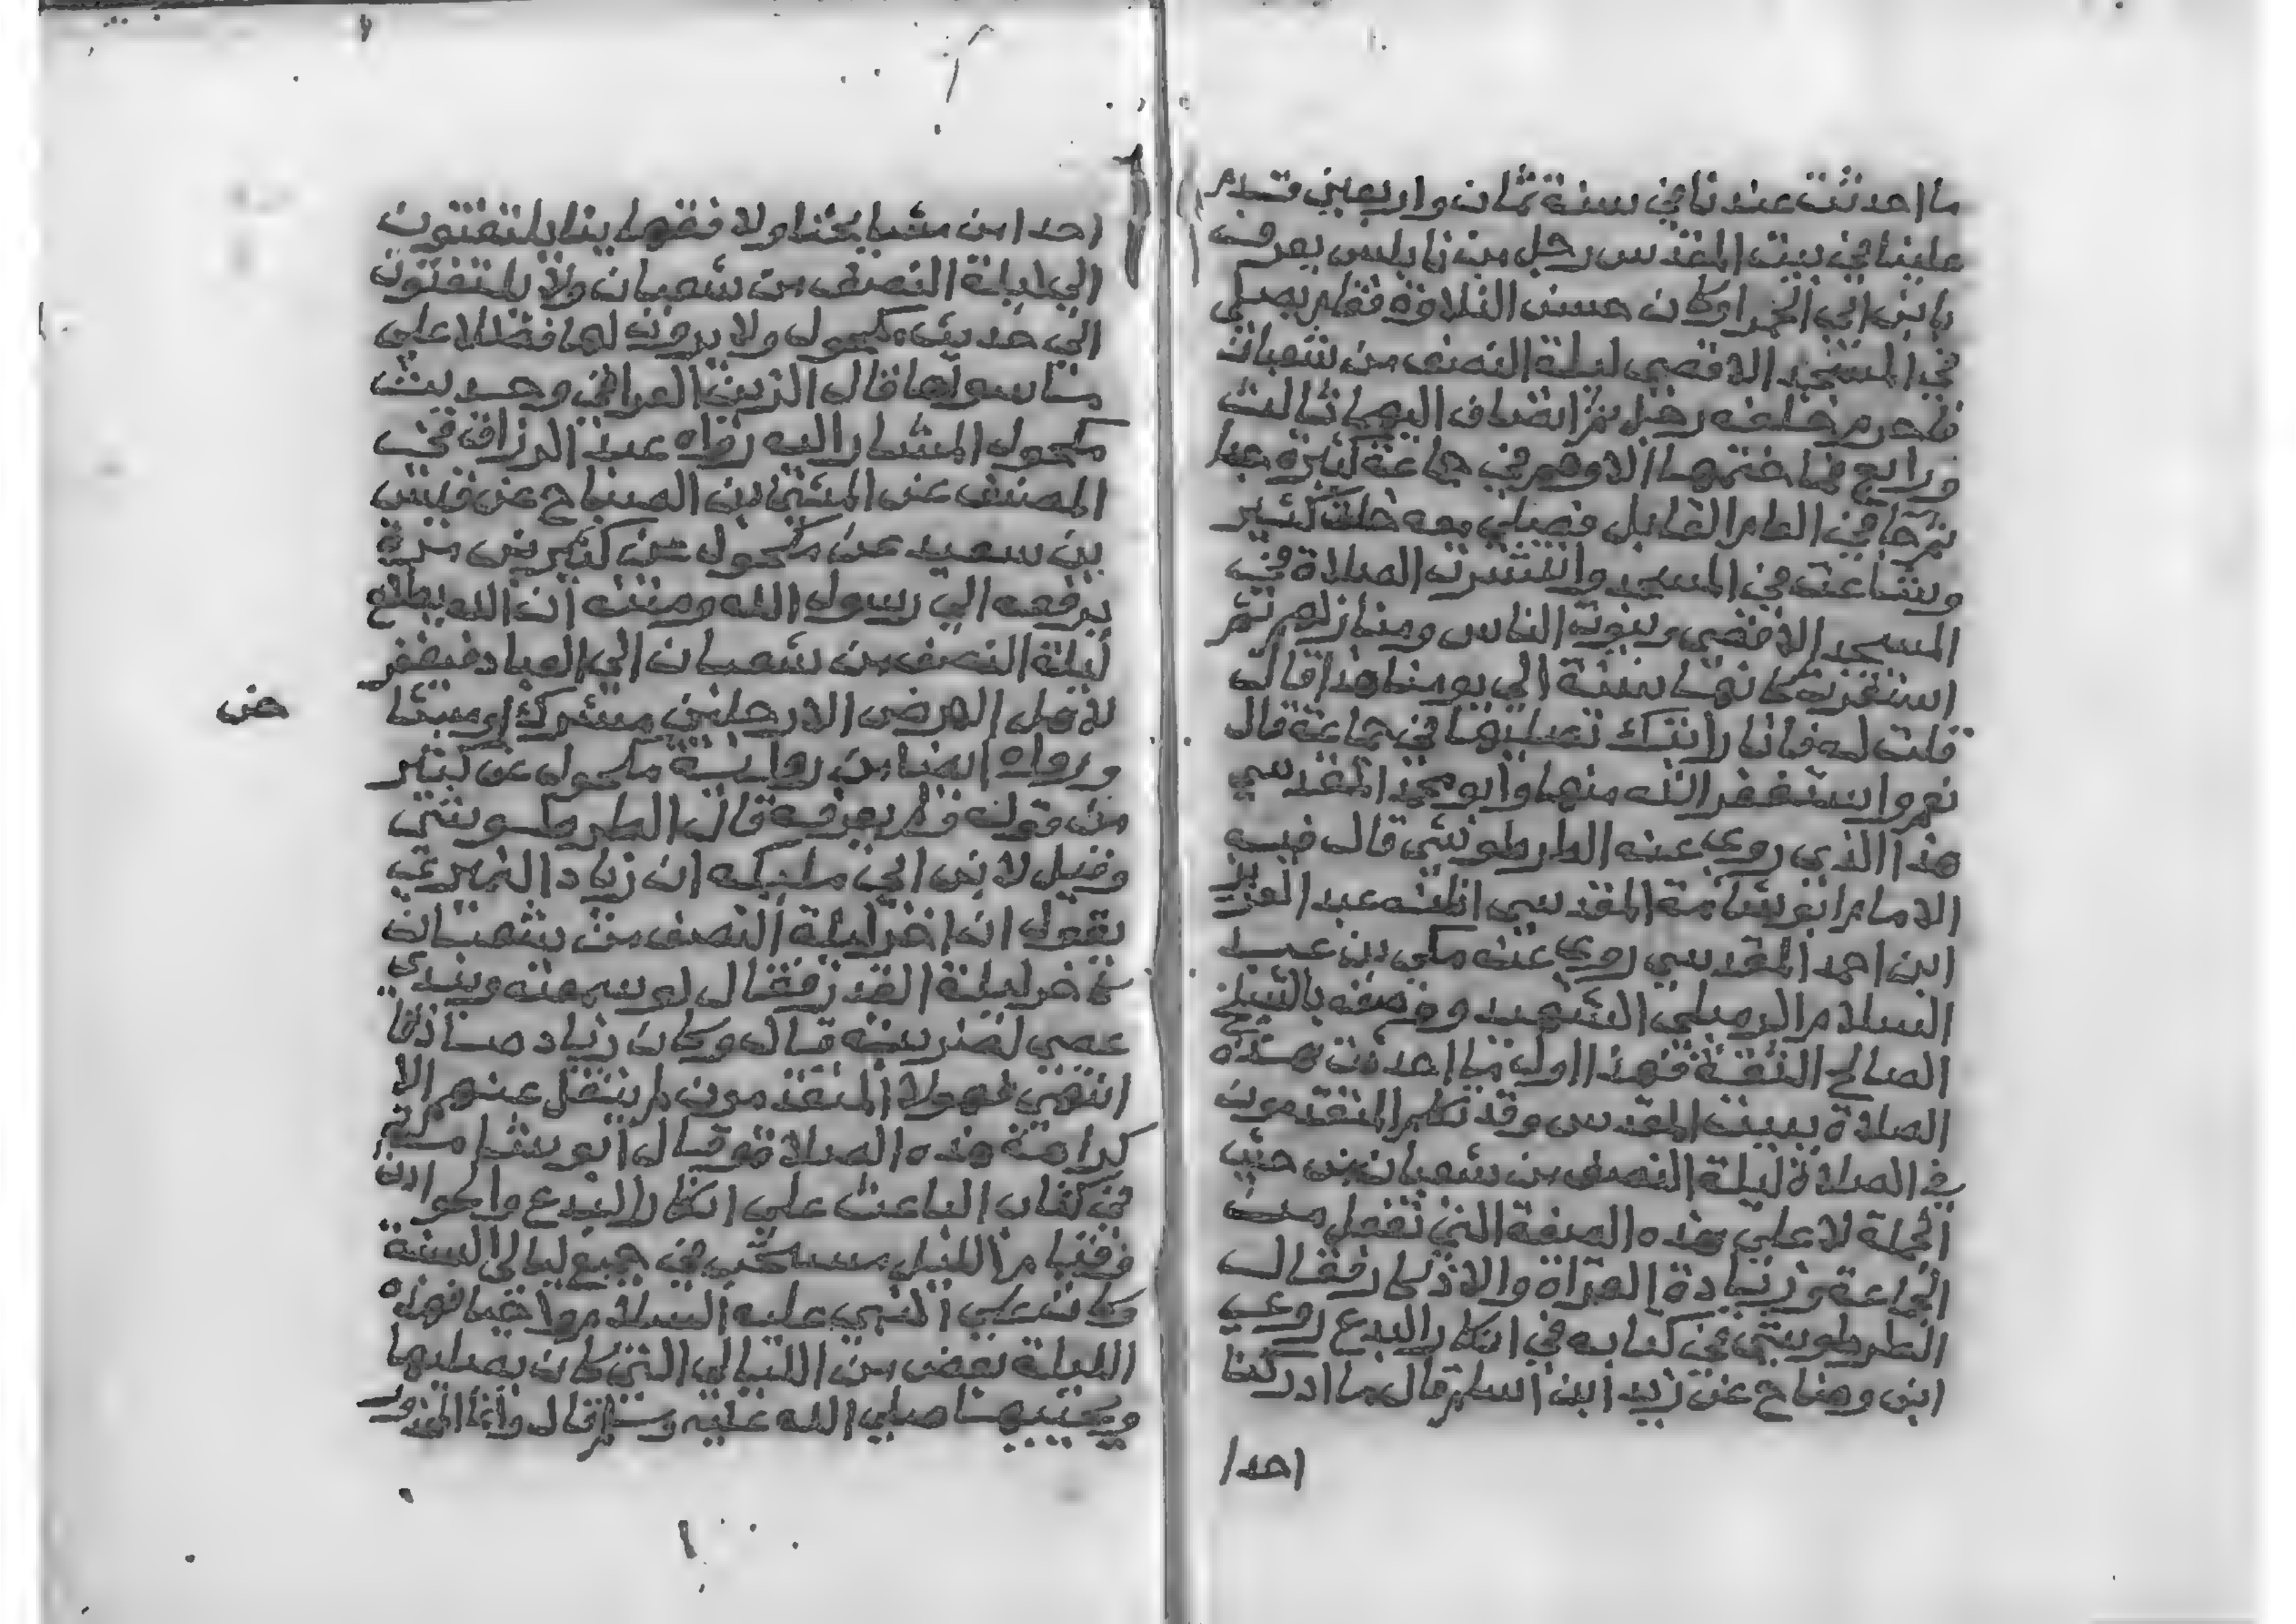 ما احدثت عندنا في سنة ثمان واربعين قدم
علينا في بيت المقدس رجل من نابلس يعرف
بابن ابي الحمرا وكان حسن التلاوة فقام يصلي
في المسجد الاقصى ليلة النصف من شعبان
فاحرم خلفه رجل ثم انضاف اليهما ثالث
ورابع فما ختمها الا وهو في جماعة كثيرة
ثم جا في العام القابل فصلي معه خلق كثير
وشاعت في المسجد وانتشرت الصلاة في
المسجد الاقصى وبيوت الناس ومنازلهم ثم
استقرت كانها سنة الي يومنا هذا قال
قلت له فانا رايتك تصليها في جماعة قال
نعم واستغفر الله منها وابو محمد المقدسي
هذا الذي روي عنه الطرطوشي قال فيه
الامام ابو شامة المقدسي اظنه عبد العزيز
ابن احمد المقدسي روي عنه مكي بن عبد
السلام الرميلي الشهيد ووصفه بالشيخ
الصالح الثقة فهذا اول ما احدثت هذه
الصلاة ببيت المقدس وقد تكلم المتقدمون
في الصلاة ليلة النصف من شعبان من حيث
الجملة لا علي هذه الصفة التي تفعل من
الجماعة وزيادة القراة والاذكار فقال
الطرطوشي في كتابه في انكار البدع روي
ابن وضاح عن زيد ابن اسلم قال ما ادركنا
احدا
احدا من مشايخنا ولا فقهاينا يلتفتون
الي ليلة النصف من شعبان ولا يلتفتون
الي حديث مكحول ولا يرون لها فضلا علي
ما سواها قال الزين العراقي وحديث
مكحول المشار اليه رواه عبد الرزاق في
المصنف عن المثني بن الصباح عن قيس
بن سعيد عن مكحول عن كثير بن مرة
يرفعه الي رسول الله ومنته ان الله يطلع
ليلة النصف من شعبان الي العباد فيغفر
لاهل الارض الا رجلين مشرك او مشا
حن
ورواه ايضا من رواية مكحول عن كثير
من قوله فلم يعرفه قال الطرطوشي
وقيل لابن ابي مليكه ان زياد النميري
يقول ان اجر ليلة النصف من شعبان
كاجر ليلة القدر فقال لو سمعته وبيدي
عصي لضربته قال وكان زياد قاصا
انتهي فهولا المتقدمون لم ينقل عنهم الا
كراهة هذه الصلاة وقال ابو شامة
في كتاب الباعث علي انكار البدع والحوادث
وقيام الليل مستحب في جميع ليالي السنة
وكان علي النبي عليه السلام واجبا فهذه
الليلة بعض من الليالي التي كان يصليها
ويحييها صلي الله عليه وسلم قال وانما المحذور